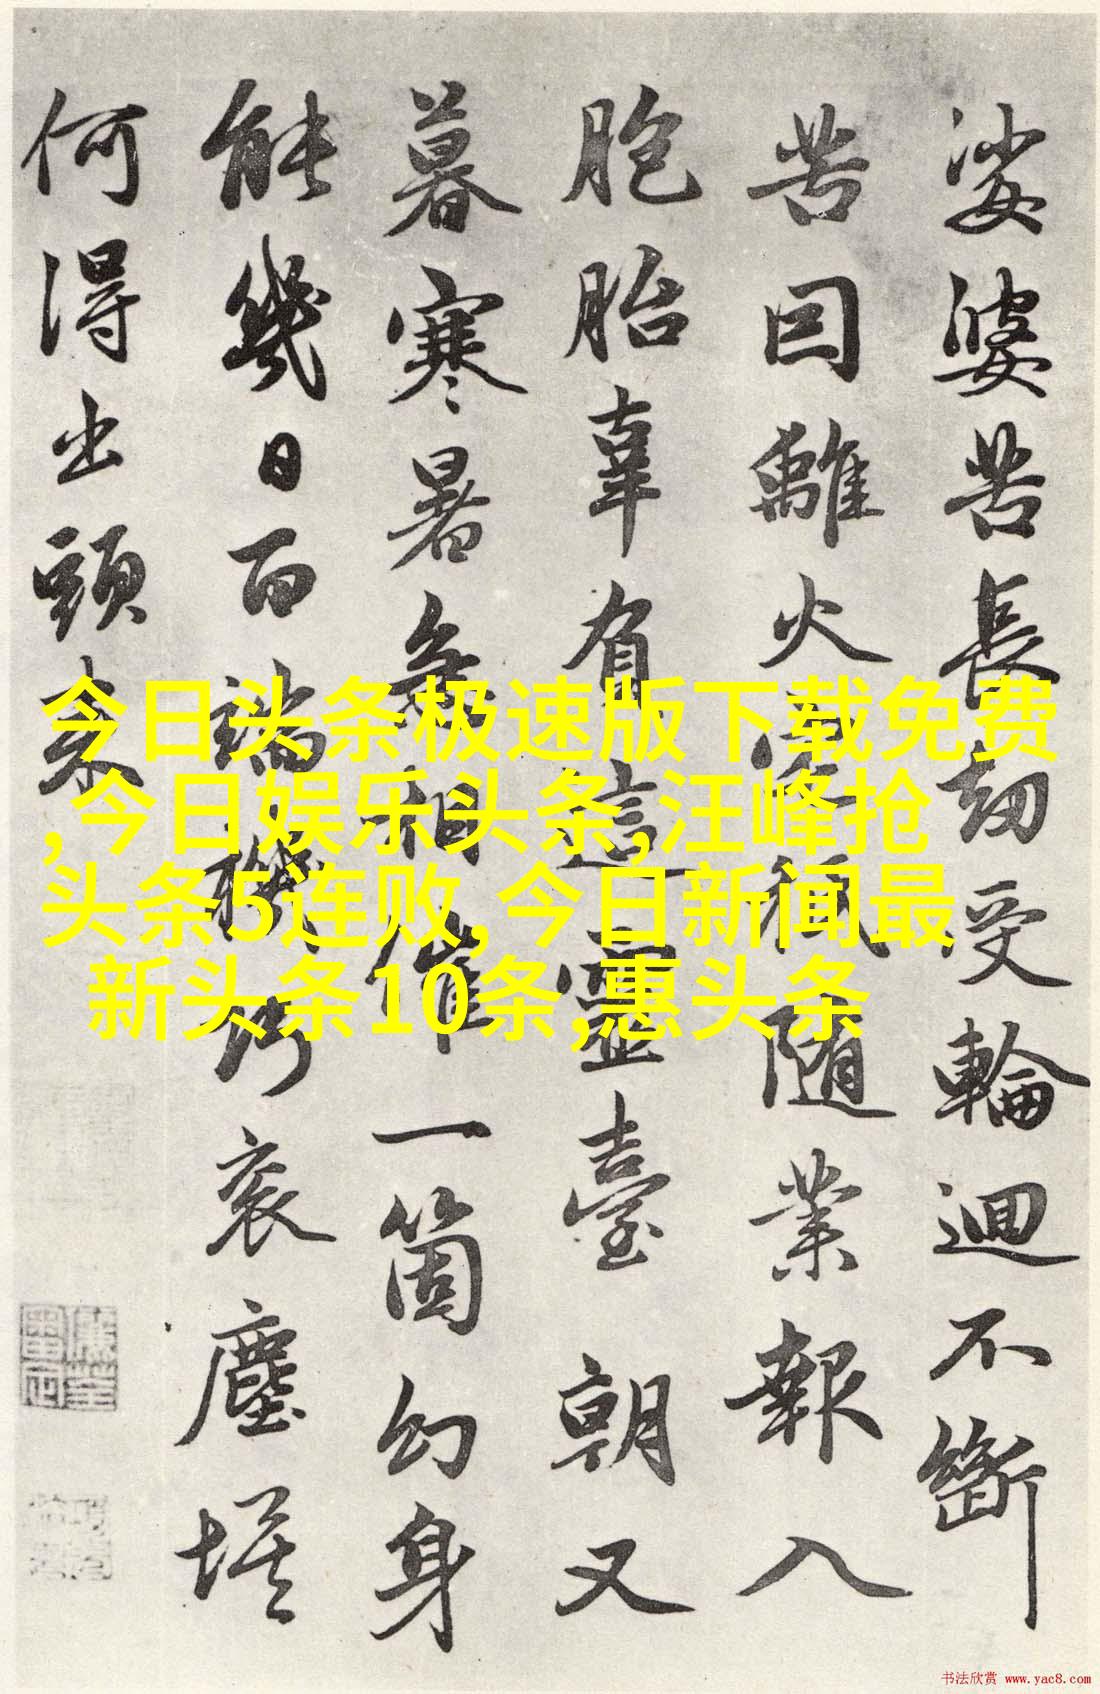 娑婆苦長劫受輪迴不斷
苦囙離火宅秪随業報入
胞胎辜負這靈臺朝又
暮寒暑急相催一箇幻身
能幾日百端機巧衮塵埃
何得出頭来
今日头条极速版下载免费
,今日娱乐头条,汪峰抢
头条5连败, 今日新闻最
新头条10条,惠头条
书法欣赏 www.yac8.com